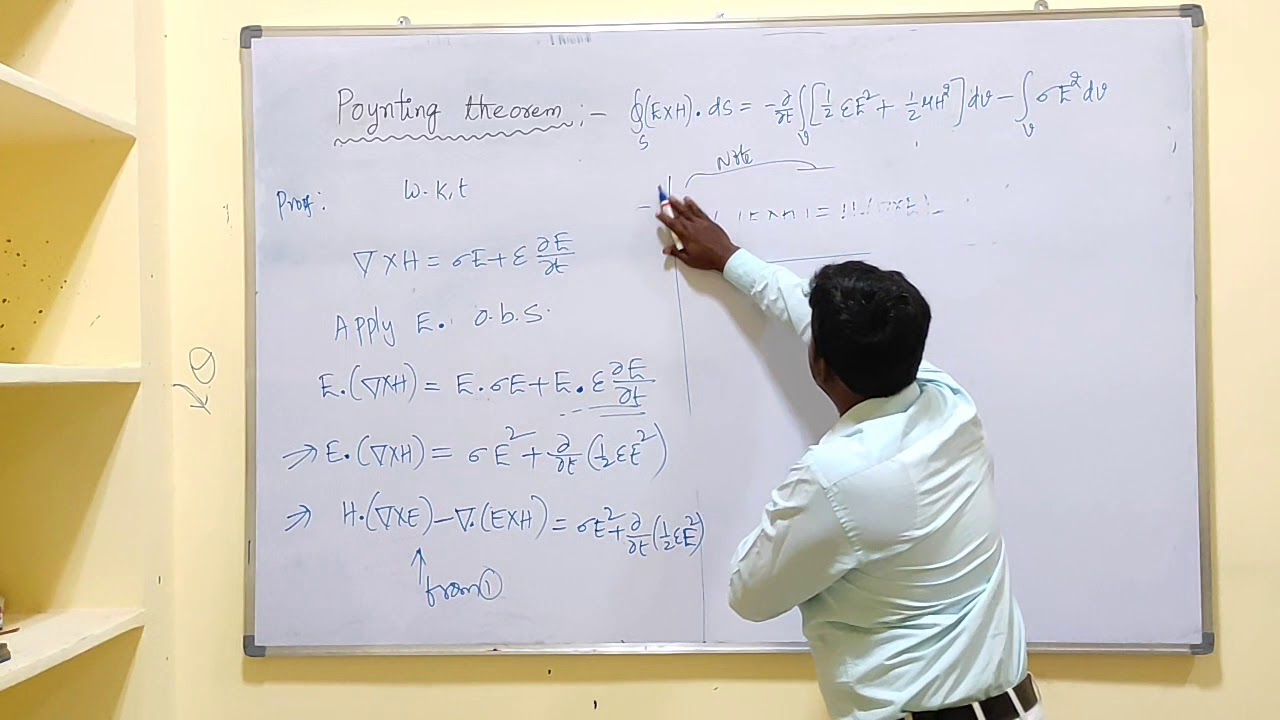 Poynting theorem :- ∮_S (E×H)·ds = -∂/∂t ∫_v [½ εE² + ½ μH²] dv - ∫_v σE² dv
Note
Proof: W.K.t
∇×H = σE + ε ∂E/∂t
Apply E· o.b.s.
E·(∇×H) = E·σE + E·ε ∂E/∂t
⇒ E·(∇×H) = σE² + ∂/∂t (½ εE²)
⇒ H·(∇×E) - ∇·(E×H) = σE² + ∂/∂t (½ εE²)
↑
from ①